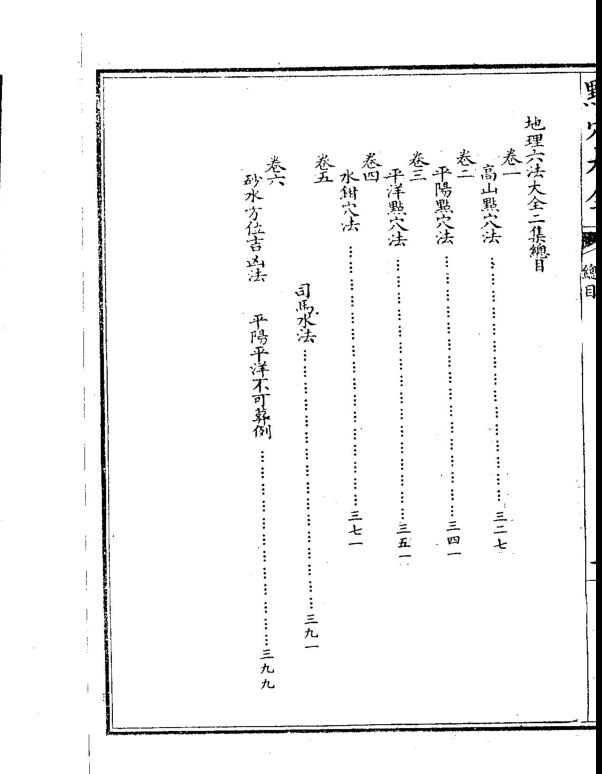 點穴大全
總目
地理六法大全二集總目
卷一
高山點穴法……三二七
卷二
平陽點穴法……三四一
卷三
平洋點穴法……三五一
卷四
水鉗穴法……三七一
卷五
司馬水法……三九一
卷六
砂水方位吉凶法 平陽平洋不可葬例……三九九